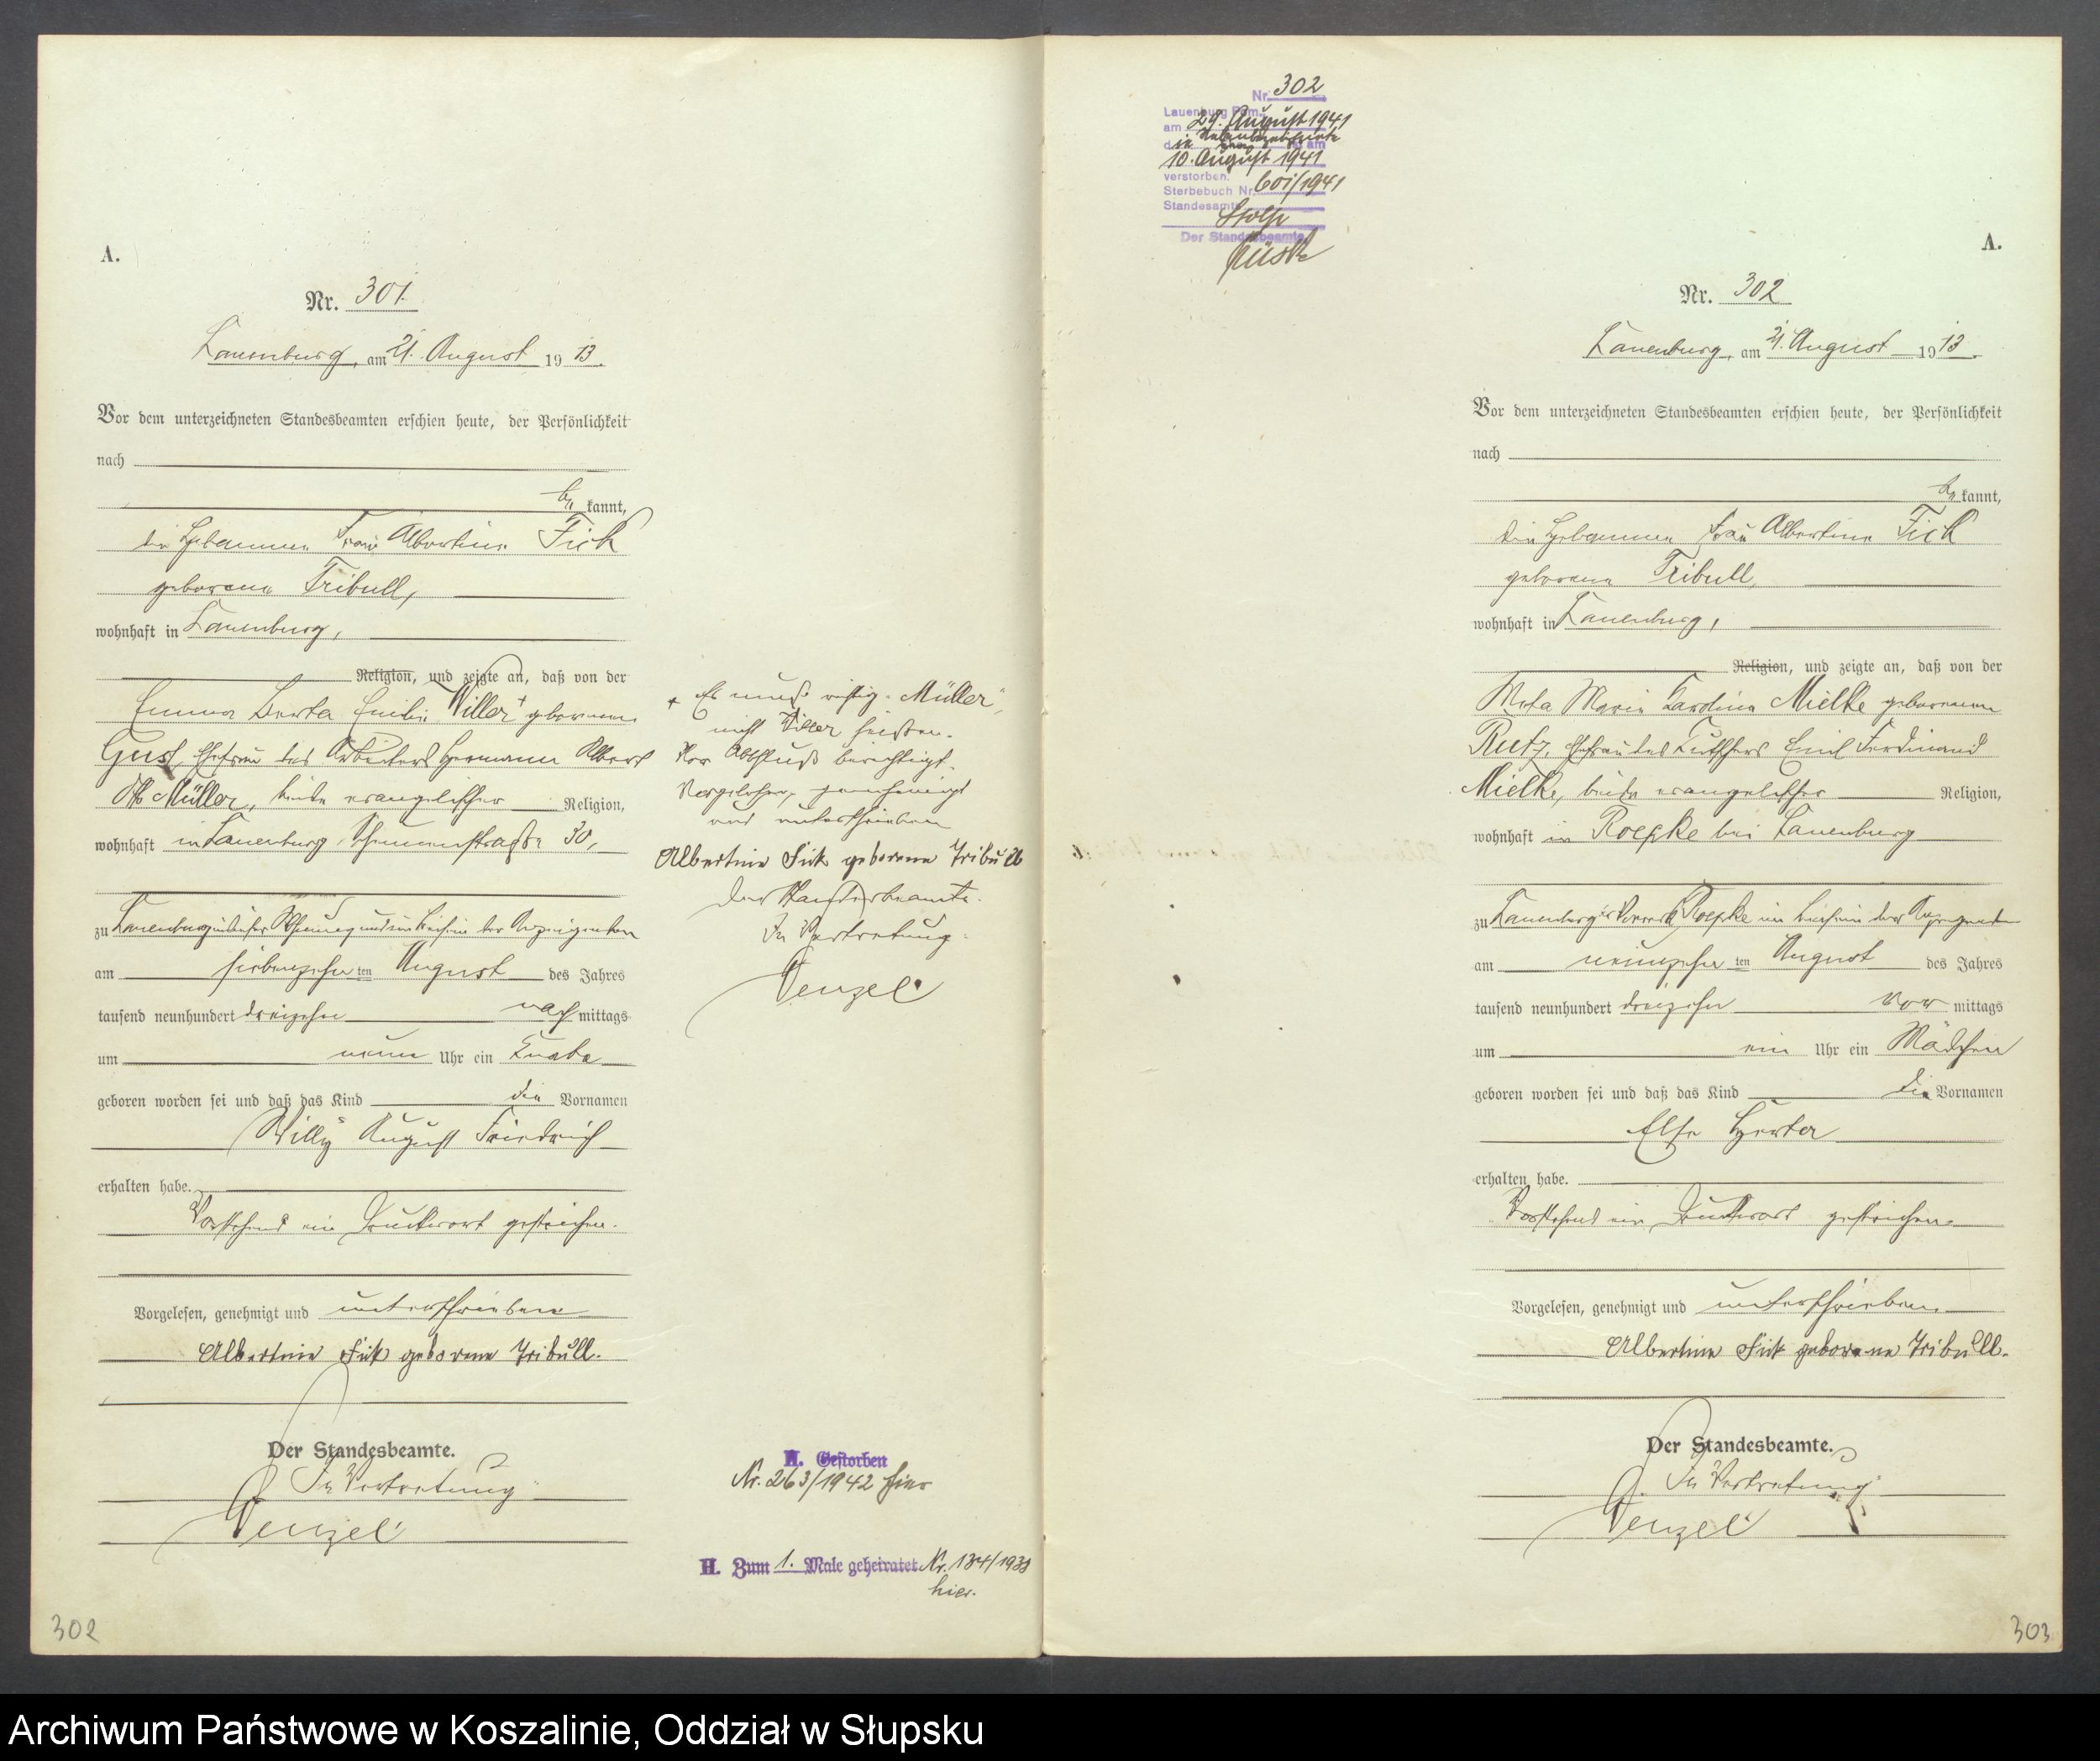 A.
Nr. 301.
Lauenburg, am 21. August 19 13.
Vor dem unterzeichneten Standesbeamten erschien heute, der Persönlichkeit
nach
be kannt,
die Hebamme Frau Albertine Fick
geborene Tribull,
wohnhaft in Lauenburg,
Religion, und zeigte an, daß von der
Emma Berta Emilie Willer + geborenen
Gust, Ehefrau des Arbeiters Hermann Albert
Otto Müller, beide evangelischer Religion,
wohnhaft in Lauenburg, Scheunenstraße 30,
zu Lauenburg in dieser Wohnung und im Beisein der Anzeigenden
am siebenzehn ten August des Jahres
tausend neunhundert dreizehn nach mittags
um neun Uhr ein Knabe
geboren worden sei und daß das Kind die Vornamen
Willy August Friedrich
erhalten habe.
Vorstehend ein Druckwort gestrichen.
Vorgelesen, genehmigt und unterschrieben
Albertine Fick geborene Tribull.
Der Standesbeamte.
In Vertretung
Wenzel
302
+ Es muß richtig "Müller",
nicht Willer heißen.
Vor Abschluß berichtigt.
Vorgelesen, genehmigt
und unterschrieben
Albertine Fick geborene Tribull
Der Standesbeamte.
In Vertretung.
Wenzel
H. Gestorben
Nr. 263/1942 hier
H. Zum 1. Male geheiratet Nr. 134/1938
hier.
Nr. 302
Lauenburg Pom.
am 29. August 1941
am
10. August 1941
verstorben.
Sterbebuch Nr. 601/1941
Standesamts
Stolp
Der Standesbeamte
A.
Nr. 302
Lauenburg, am 21. August 19 13.
Vor dem unterzeichneten Standesbeamten erschien heute, der Persönlichkeit
nach
be kannt,
die Hebamme Frau Albertine Fick
geborene Tribull,
wohnhaft in Lauenburg,
Religion, und zeigte an, daß von der
Meta Marie Karoline Mielke geborenen
Rutz, Ehefrau des Kutschers Emil Ferdinand
Mielke, beide evangelischer Religion,
wohnhaft in Roepke bei Lauenburg
zu Lauenburg Vorwerk Roepke im Beisein der Anzeigenden
am neunzehn ten August des Jahres
tausend neunhundert dreizehn vor mittags
um ein Uhr ein Mädchen
geboren worden sei und daß das Kind die Vornamen
Else Herta
erhalten habe.
Vorstehend ein Druckwort gestrichen.
Vorgelesen, genehmigt und unterschrieben.
Albertine Fick geborene Tribull.
Der Standesbeamte.
In Vertretung
Wenzel
303
Archiwum Państwowe w Koszalinie, Oddział w Słupsku